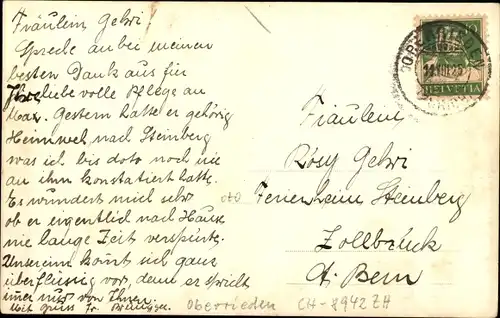 Fräulein Gehri.
Spreche anbei meinen
besten Dank aus für
Ihre liebe volle Pflege an
Max. Gestern hatte er gehörig
Heimweh nach Steinberg
was ich bis dato noch nie
an ihm konstatiert hatte.
Es wundert mich sehr
ob er eigentlich nach Hause
nie lange Zeit verspürte.
Unsereim komt sich ganz
überflüssig vor, denn er spricht
imer nur von Ihnen.
Mit Gruss Fr.
HELVETIA
Fräulein
Rösy Gehri
Ferienheim Steinberg
Zollbrück
Kt. Bern
Oberrieden CH-8942 ZH